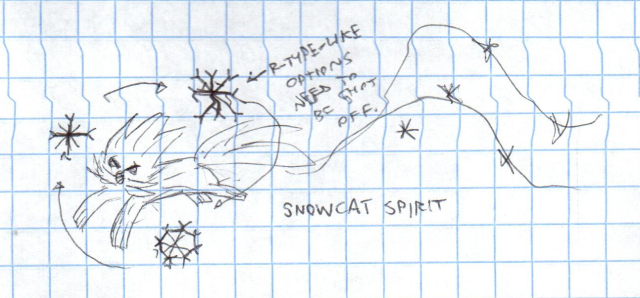 R-TYPE-LIKE
OPTIONS
NEED TO
BE SHOT
OFF.
SNOWCAT SPIRIT